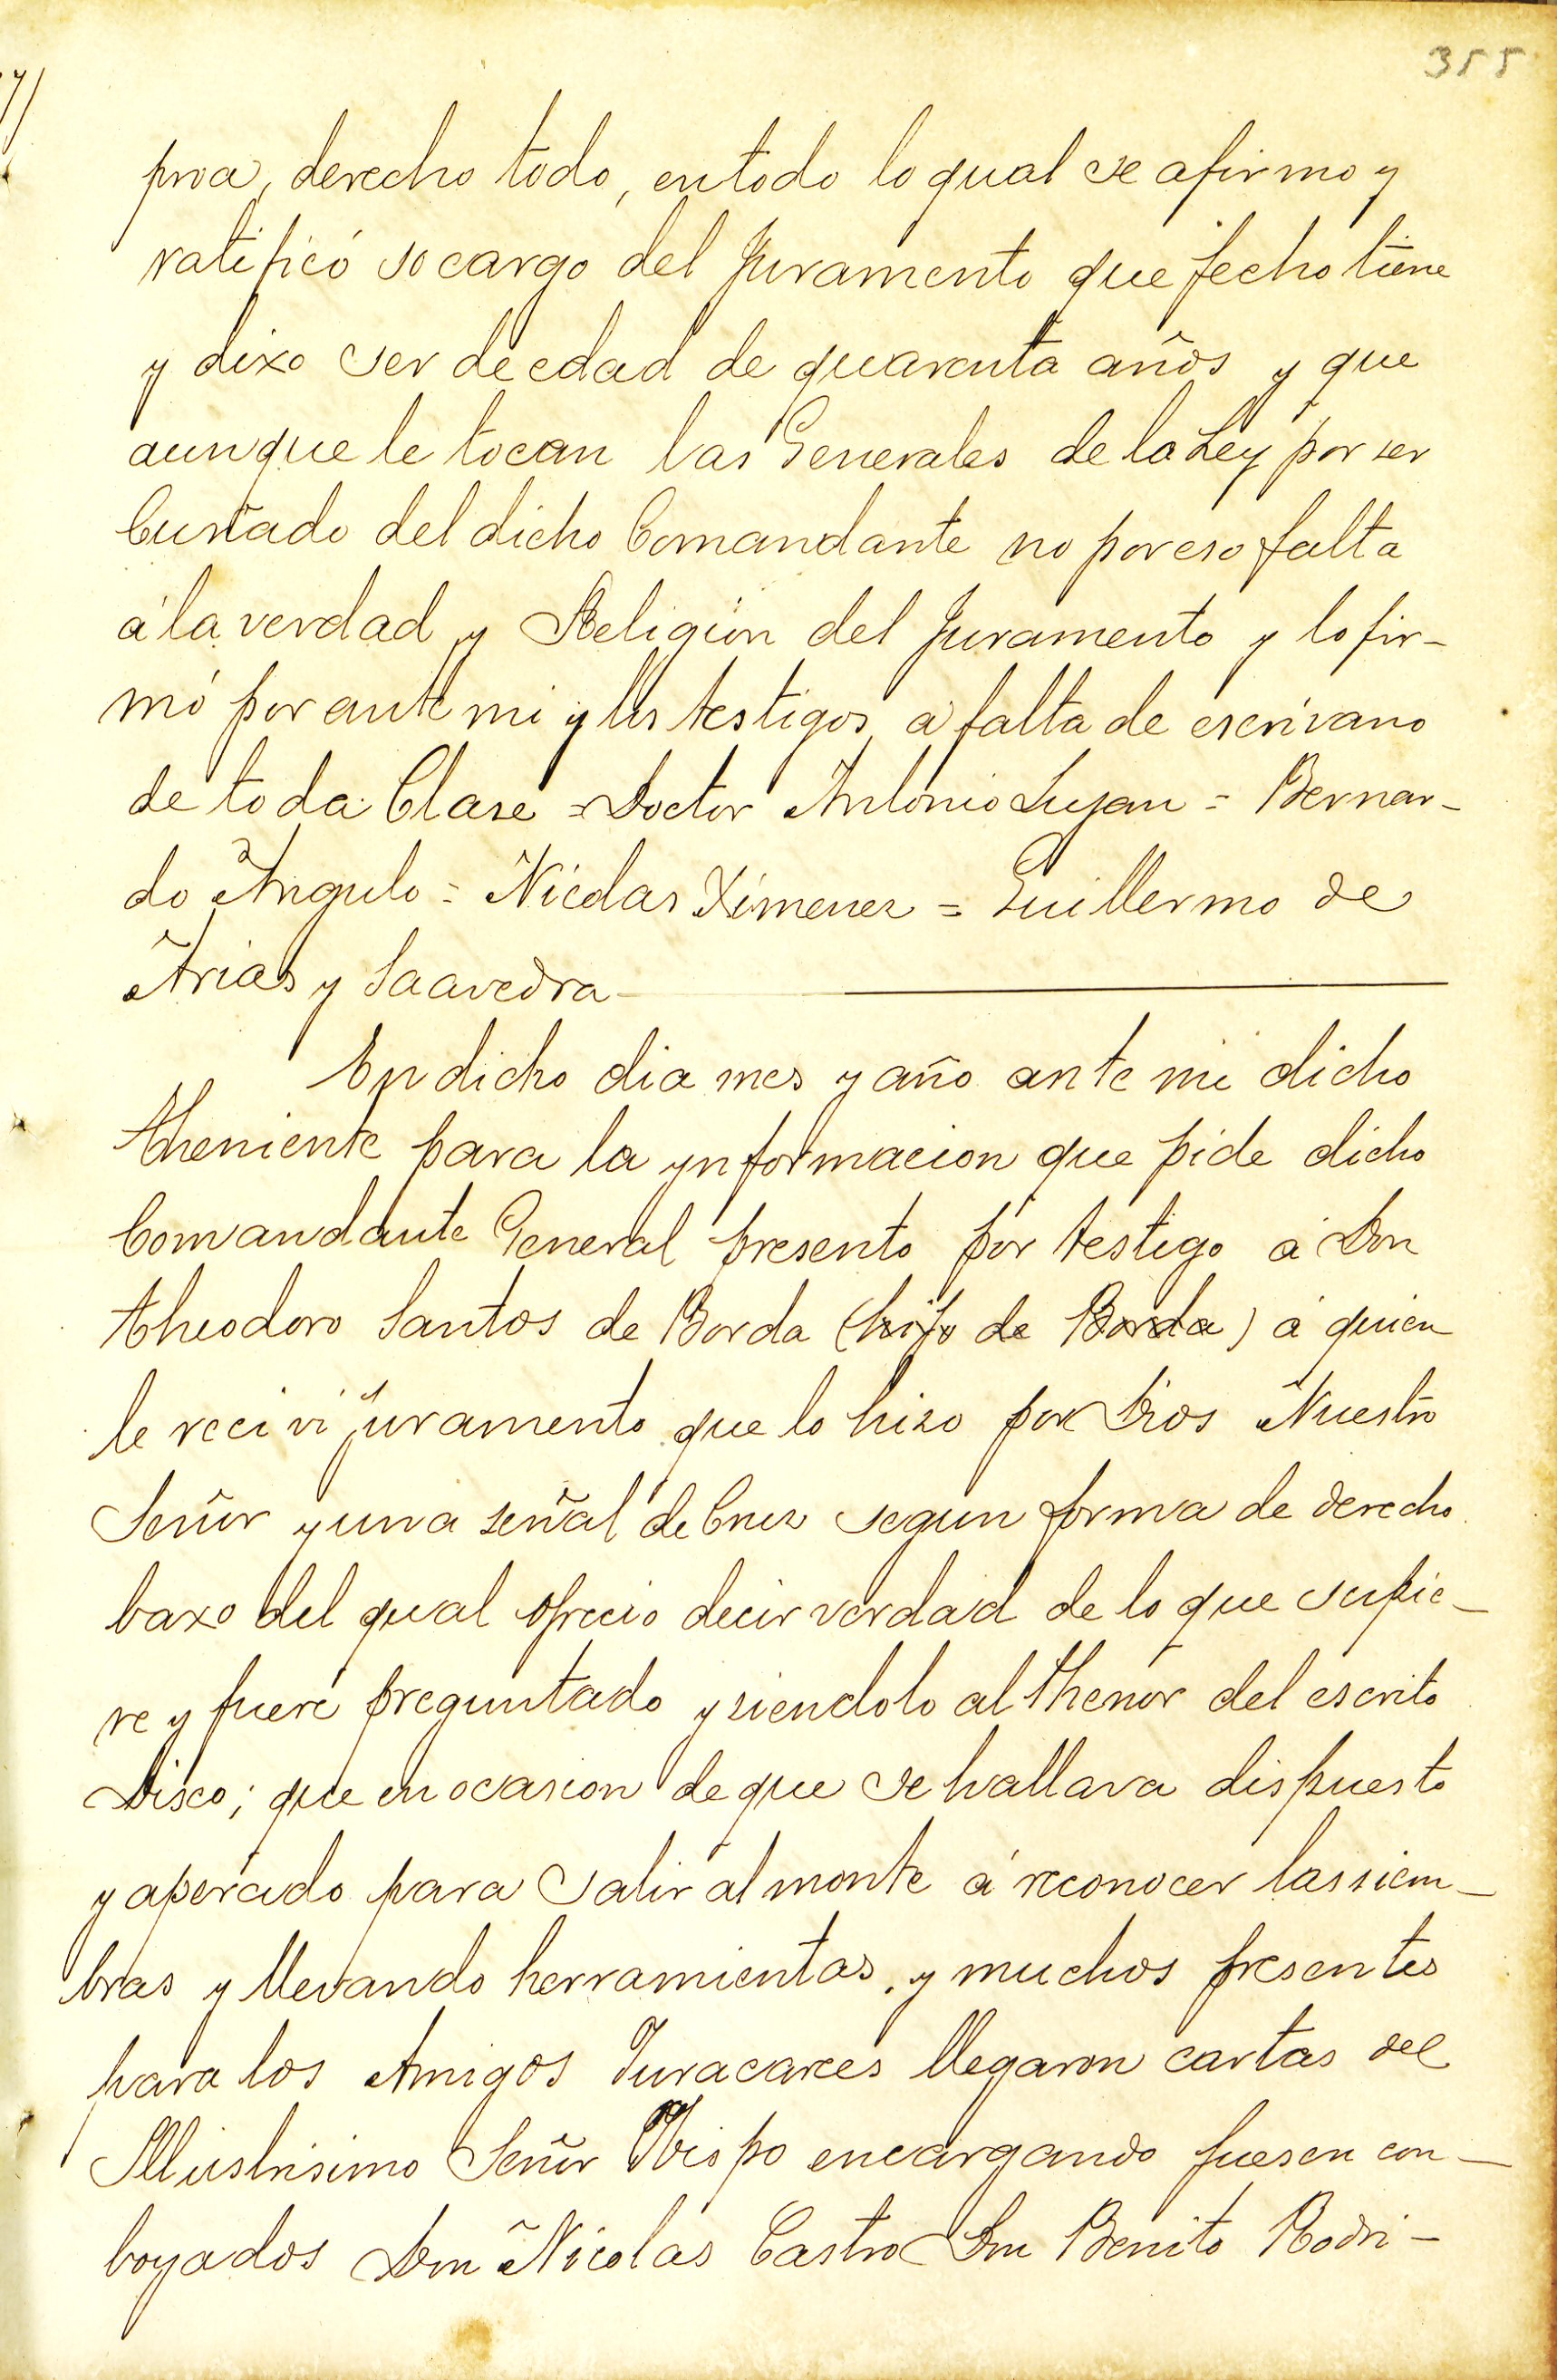 355
proa, derecho todo, en todo lo qual se afirmo y
ratificó so cargo del Juramento que fecho tiene
y dixo ser de edad de quarenta años y que
aunque le tocan las Generales de la Ley por ser
Cuñado del dicho Comandante no por eso falta
á la verdad y Religion del Juramento y lo fir-
mó por ante mi y los testigos a falta de escrivano
de toda Clase = Doctor Antonio Lujan = Bernar-
do Angulo = Nicolas Ximenez = Guillermo de
Arias y Saavedra
En dicho dia mes y año ante mi dicho
theniente para la ynformacion que pide dicho
Comandante General presento por testigo á Don
Theodoro Santos de Borda (hijo de Borda) á quien
le recivi juramento que lo hizo por Dios Nuestro
Señor y una señal de Cruz segun forma de derecho
baxo del qual ofrecio decir verdad de lo que supie-
re y fuere preguntado y siendolo al thenor del escrito
Dixo; que en ocasion de que se hallava dispuesto
y aperado para salir al monte á reconocer las siem-
bras y llevando herramientas, y muchos presentes
para los Amigos Yuracarees llegaron cartas del
Illustrisimo Señor Obispo encargando fuesen con-
boyados Don Nicolas Castro Don Benito Rodri-